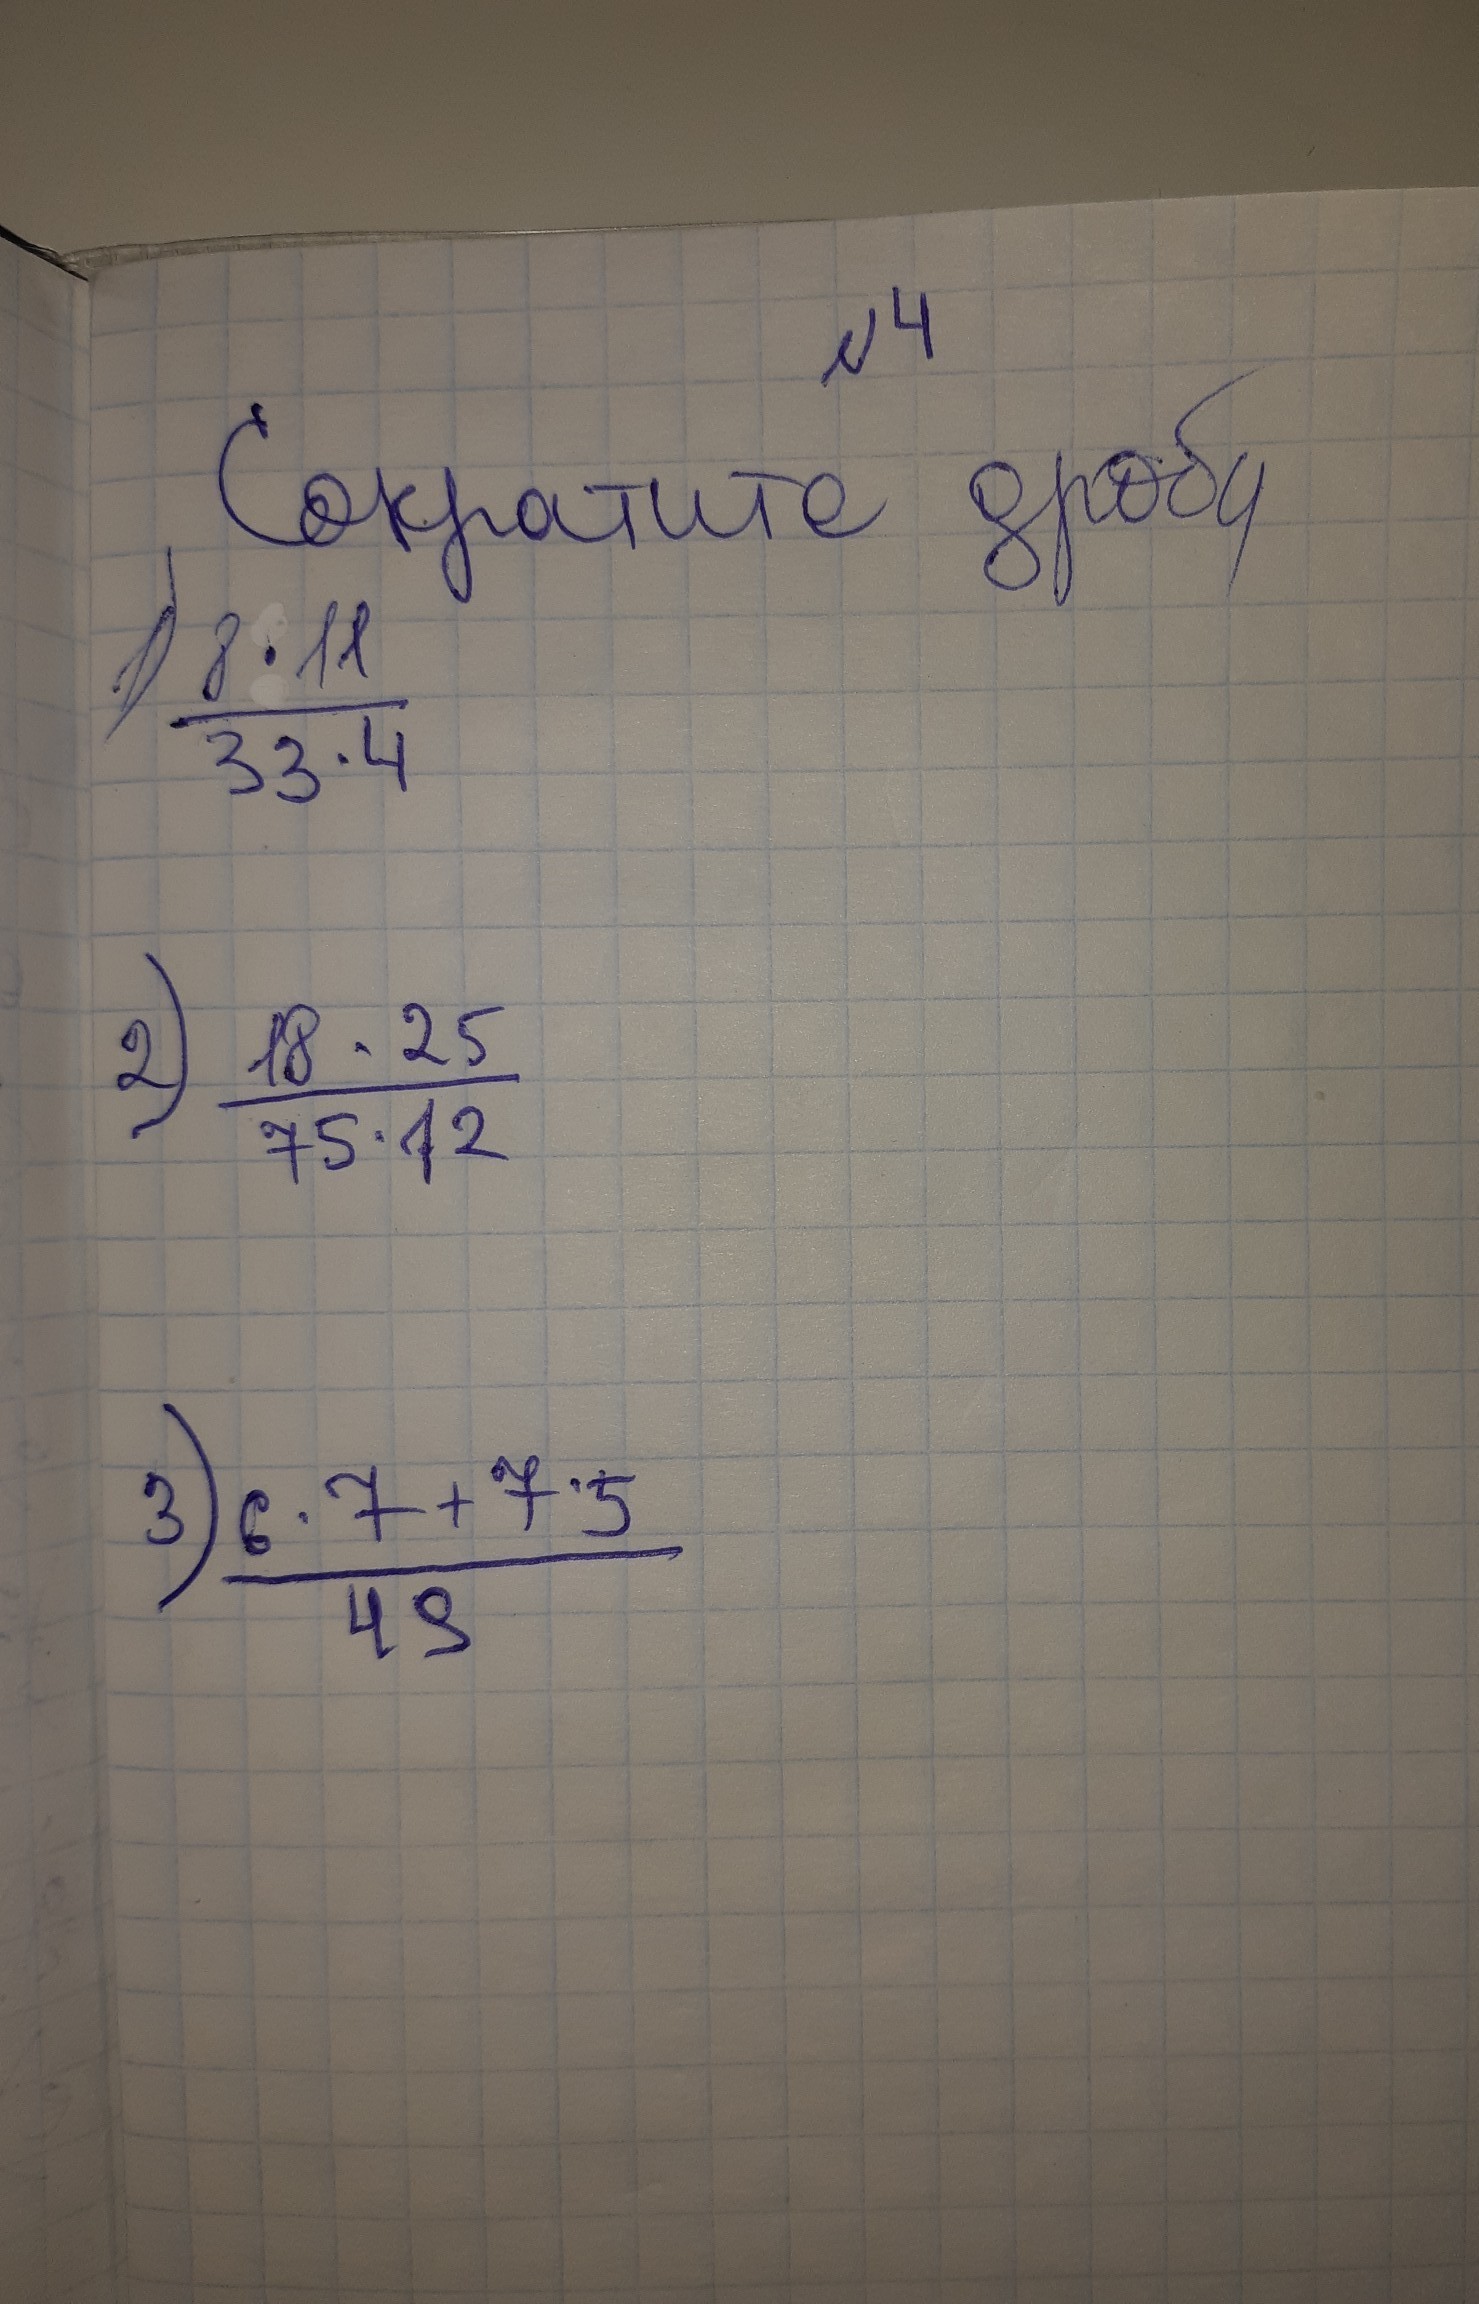 №4
Сократите дробь
1) 8·11
33·4
2) 18·25
75·12
3) 6·7+7·5
49